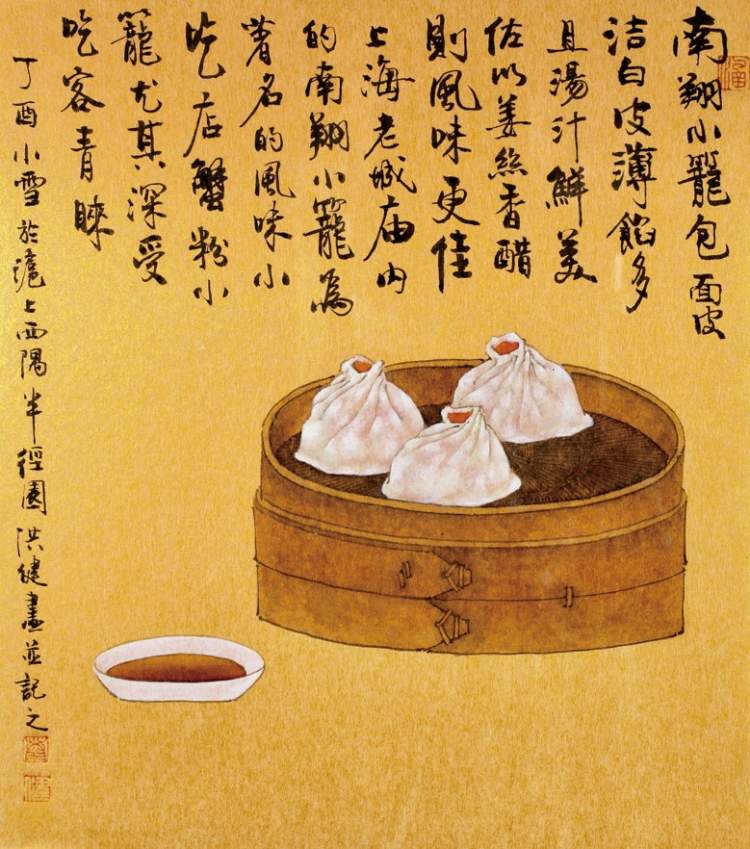 南翔小籠包面皮
洁白皮薄餡多
且湯汁鮮美
佐以姜絲香醋
則風味更佳
上海老城庙内
的南翔小籠為
著名的風味小
吃店蟹粉小
籠尤其深受
吃客青睞
丁酉小雪於滬上西隅半徑園洪健畫並記之